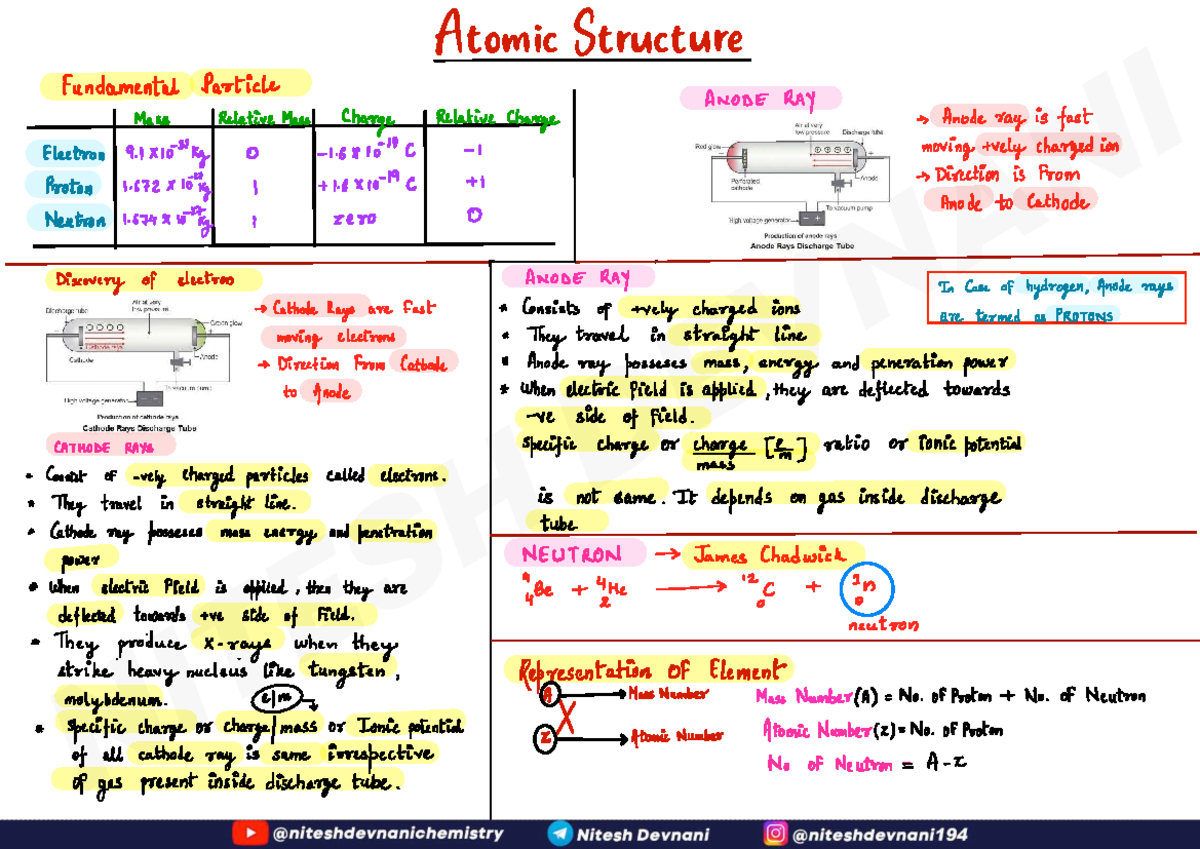 Atomic Structure
Fundamental Particle
Mass Relative Mass Charge Relative Charge
Electron 9.1 x 10⁻³¹ Kg 0 -1.6 x 10⁻¹⁹ C -1
Proton 1.672 x 10⁻²⁷ Kg 1 +1.6 x 10⁻¹⁹ C +1
Neutron 1.674 x 10⁻²⁷ Kg 1 zero 0
ANODE RAY
Air at very
low pressure
Discharge tube
Red glow
Perforated
cathode
Anode
To vacuum pump
High voltage generator
Production of anode rays
Anode Rays Discharge Tube
→ Anode ray is fast
moving +vely charged ion
→ Direction is From
Anode to Cathode
Discovery of electron
Air at very
low pressure
Discharge tube
Green glow
Cathode rays
Cathode
Anode
To vacuum pump
High voltage generator
Production of cathode rays
Cathode Rays Discharge Tube
→ Cathode Rays are Fast
moving electrons
→ Direction From Cathode
to Anode
CATHODE RAYS
• Consist of -vely charged particles called electrons.
• They travel in straight line.
• Cathode ray possesses mass energy and penetration
power
• When electric Field is applied, then they are
deflected towards +ve side of Field.
• They produce X-rays when they
strike heavy nucleus like tungsten,
molybdenum.
e/m
• Specific charge or charge/mass or Ionic potential
of all cathode ray is same irrespective
of gas present inside discharge tube.
ANODE RAY
• Consists of +vely charged ions
• They travel in straight line
• Anode ray possesses mass, energy and peneration power
• When electric field is applied, they are deflected towards
-ve side of field.
Specific charge or charge/mass [e/m] ratio or ionic potential
is not same. It depends on gas inside discharge
tube
In Case of hydrogen, Anode rays
are termed as PROTONS
NEUTRON → James Chadwick
⁹₄Be + ⁴₂He → ¹²₀C + ¹₀n
neutron
Representation of Element
A → Mass Number
X
Z → Atomic Number
Mass Number (A) = No. of Proton + No. of Neutron
Atomic Number (Z) = No. of Proton
No of Neutron = A - Z
NITESH DEVNANI
@niteshdevnanichemistry Nitesh Devnani @niteshdevnani194